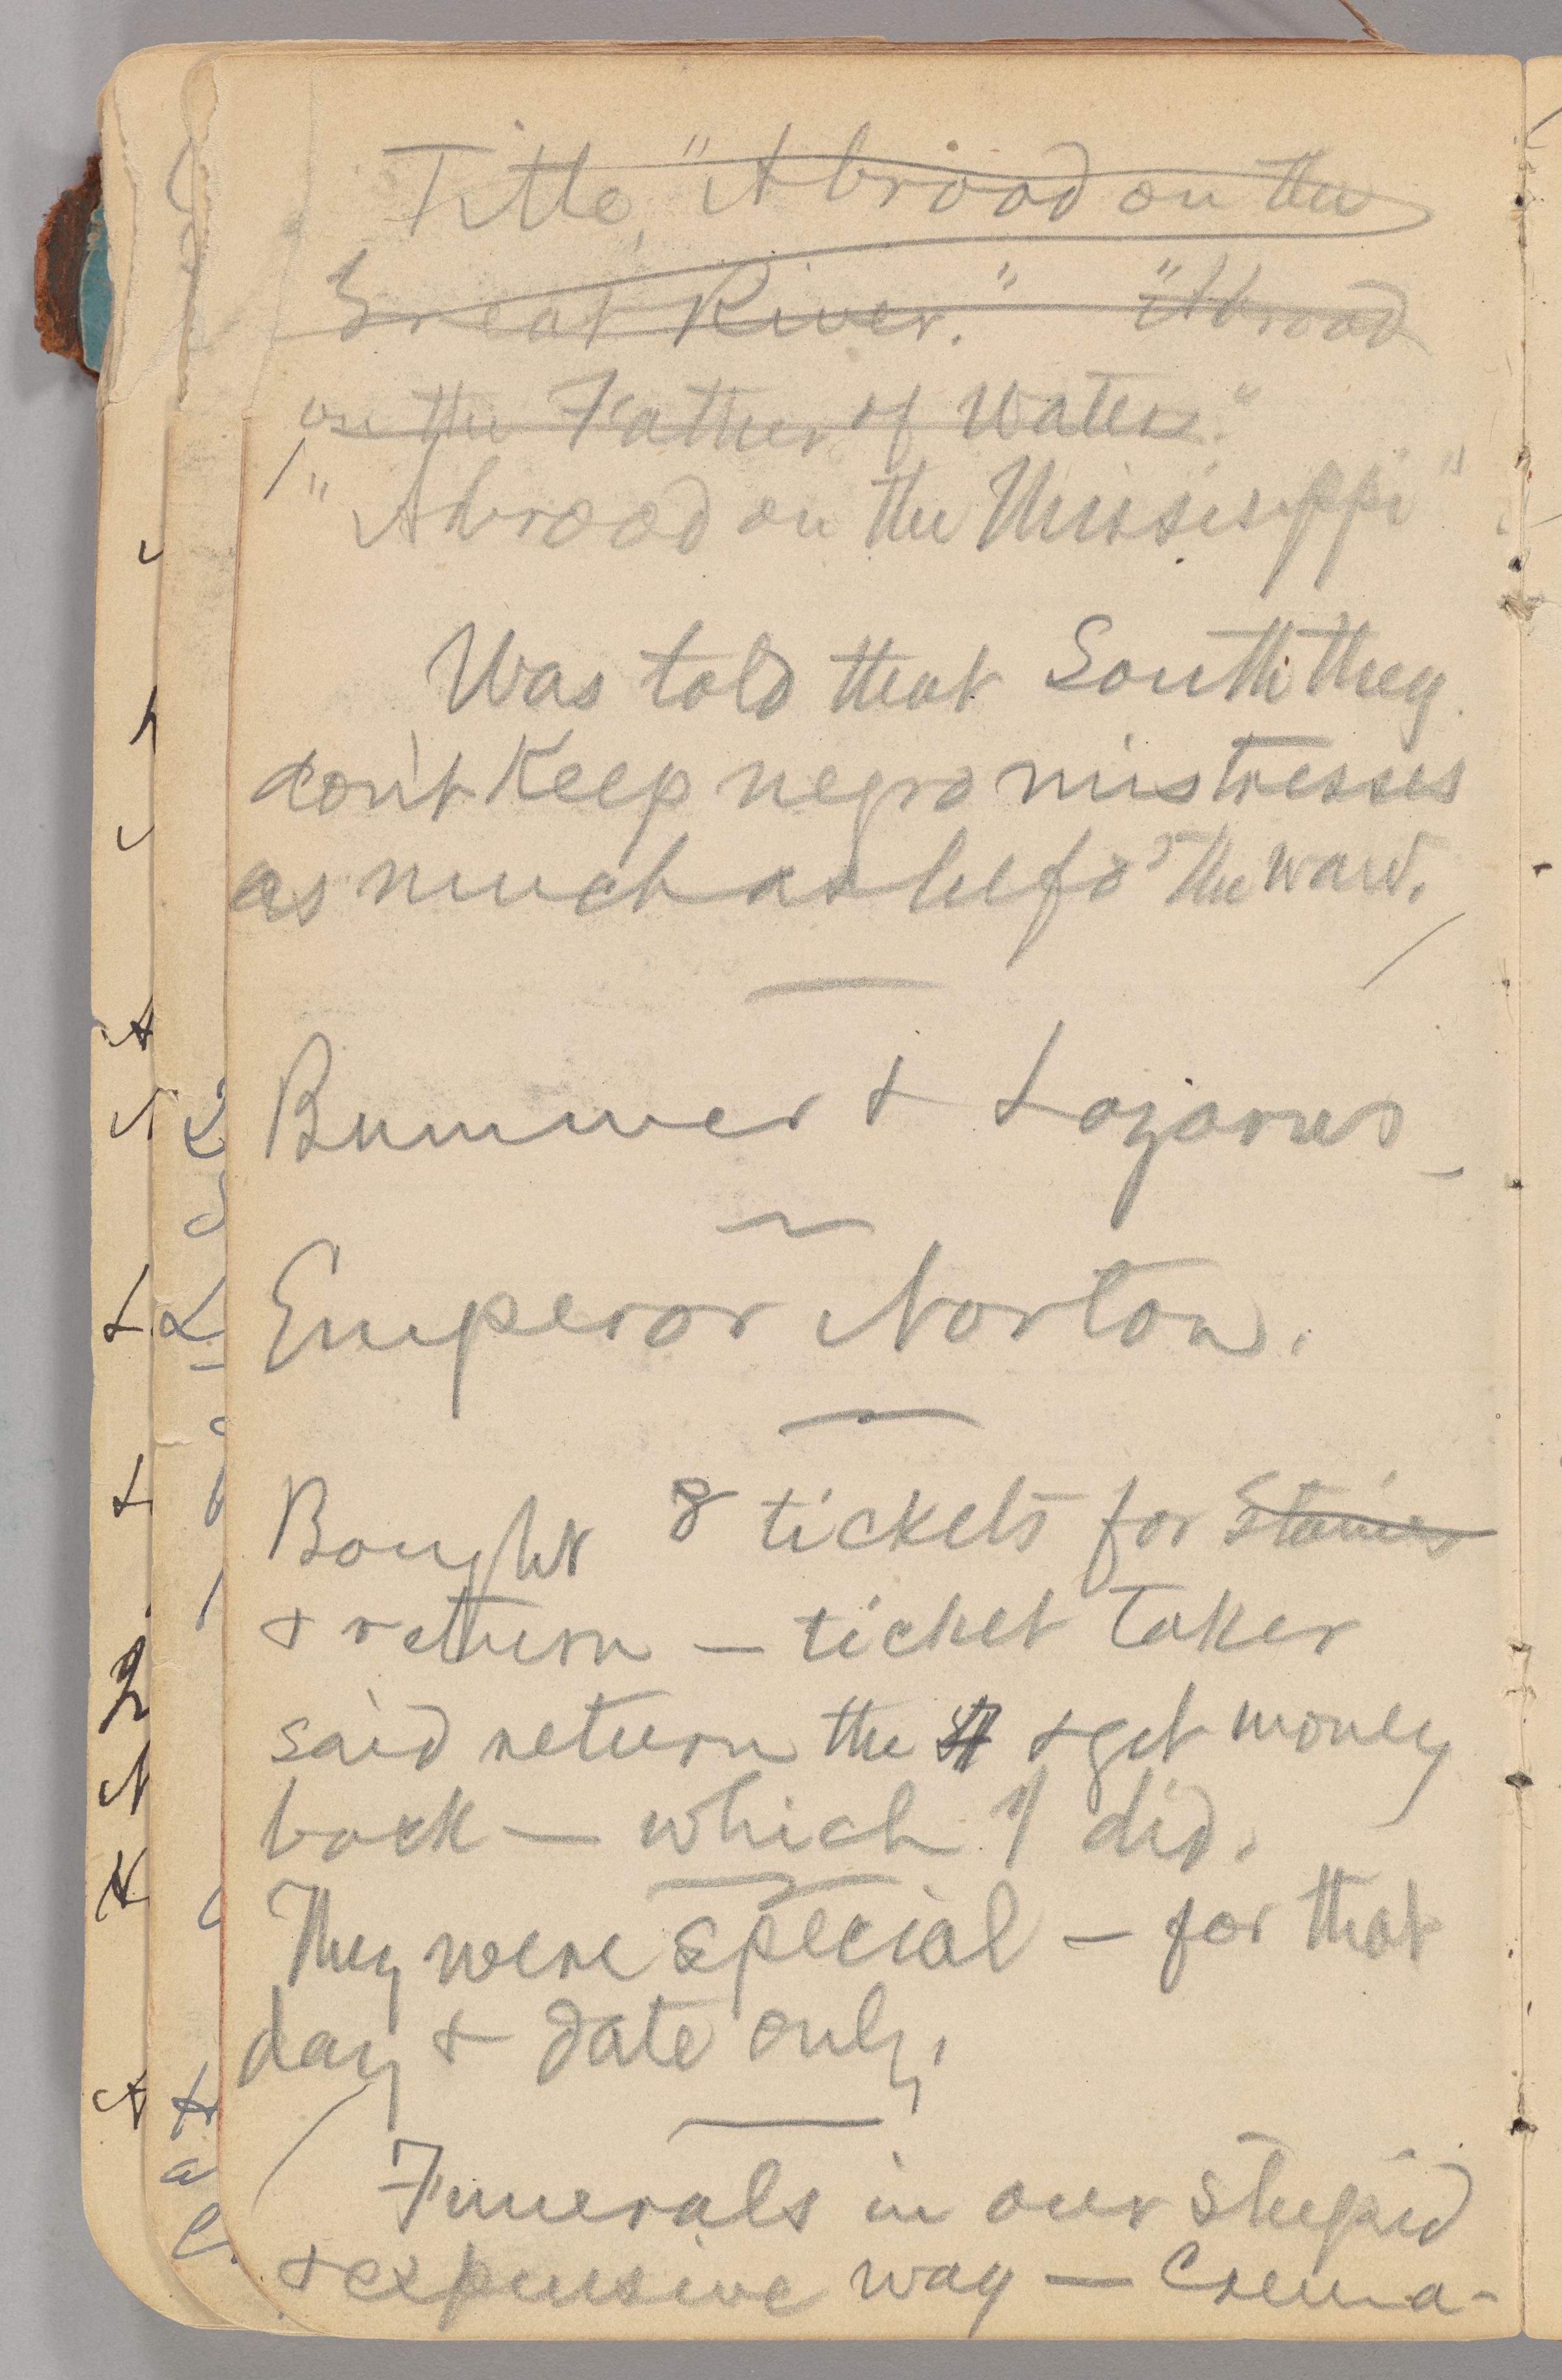 Title, "Abroad on the
Great River." "Abroad
on the Father of Waters."
"Abroad on the Mississippi"
Was told that South they
don't keep negro mistresses
as much as befo' the waw.
Bummer & Lazarus
Emperor Norton.
Bought 8 tickets for Staines
& return — ticket taker
said return the & get money
back — which I did.
They were special — for that
day & date only.
Funerals in our stupid
& expensive way — Crema-